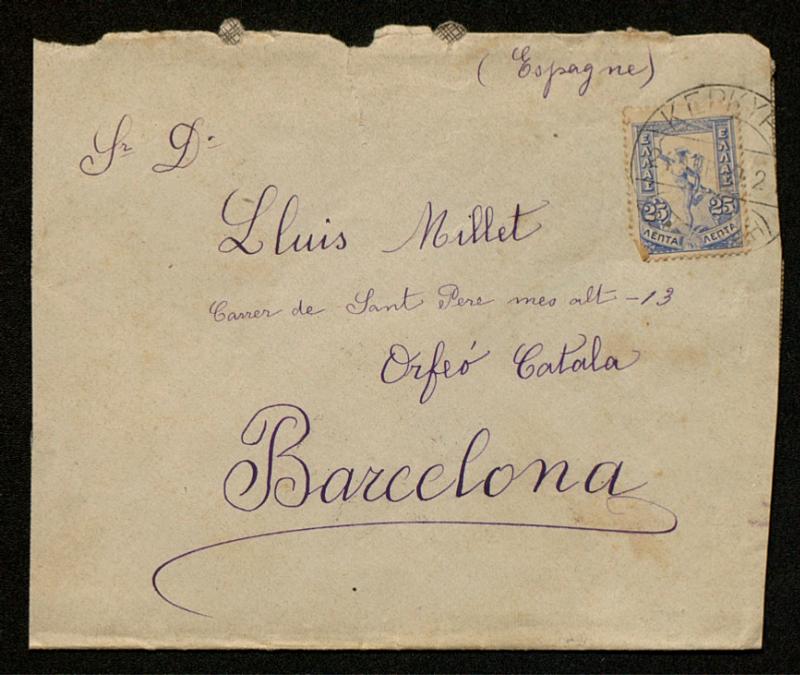 (Espagne)
Sr D.
Lluis Millet
Carrer de Sant Pere mes alt - 13
Orfeó Catala
Barcelona
ΚΕΡΚΥΡ
2
ΕΛΛΑΣ ΕΛΛΑΣ
25 25
ΛΕΠΤΑ ΛΕΠΤΑ